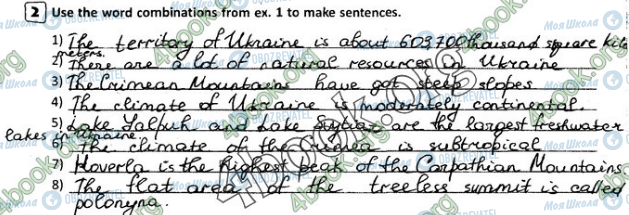 2 Use the word combinations from ex. 1 to make sentences.
1) The territory of Ukraine is about 603700 thousand square kilo
meters.
2) There are a lot of natural resources in Ukraine
3) The Crimean Mountains have got steep slopes
4) The climate of Ukraine is moderately continental
5) Lake Yalpuh and Lake are the largest freshwater
lakes in Ukraine
6) The climate of the is subtropical
7) Hoverla is the highest peak of the Carpathian Mountains
8) The flat area of the treeless summit is called
polonyna.